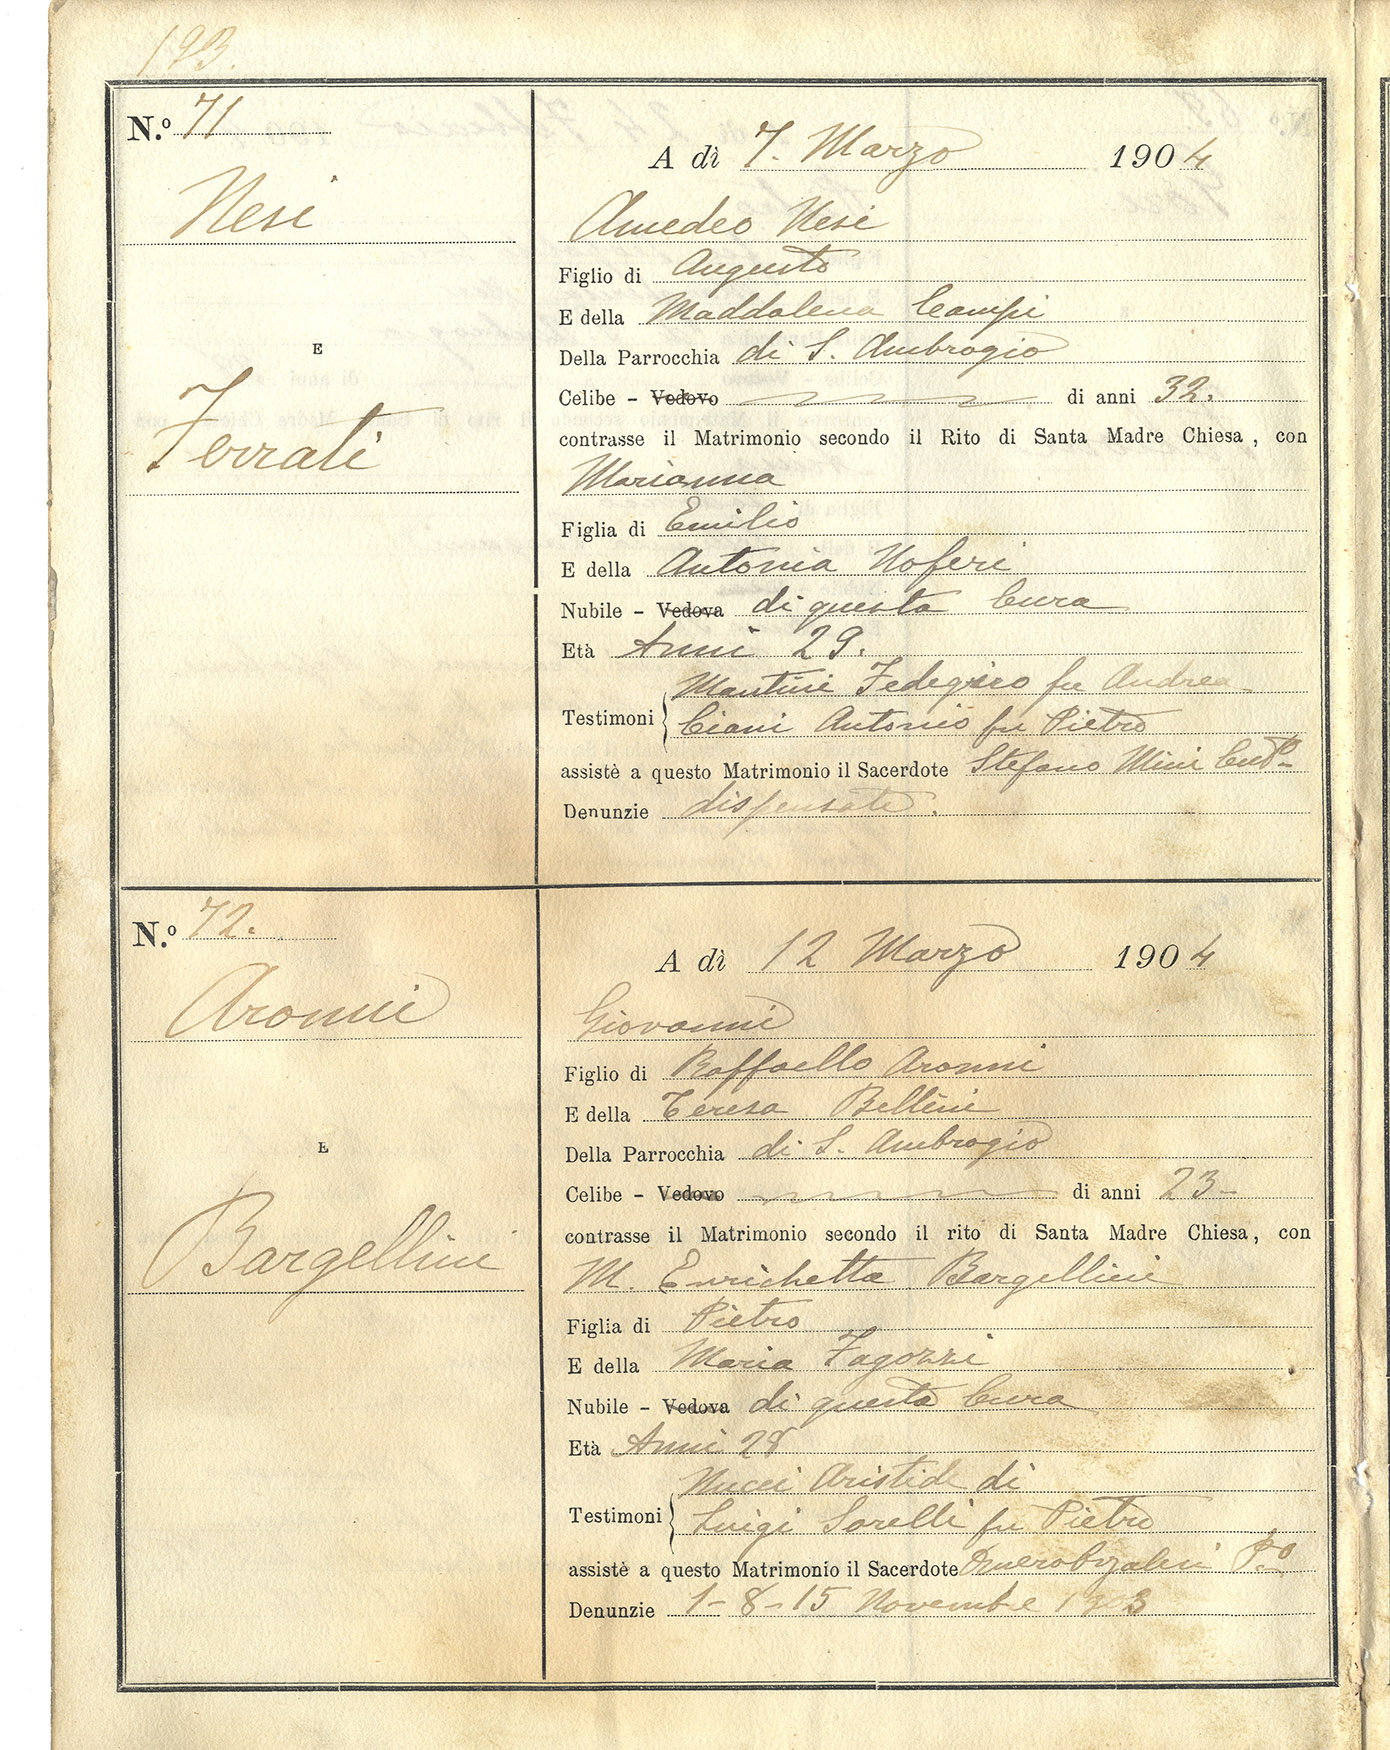 193.
N.º 71
Nesi
E
Ferrati
A dì 7. Marzo 1904
Amedeo Nesi
Figlio di Augusto
E della Maddalena Campi
Della Parrocchia di S. Ambrogio
Celibe - Vedovo di anni 32.
contrasse il Matrimonio secondo il Rito di Santa Madre Chiesa, con
Marianna
Figlia di Emilio
E della Antonia Noferi
Nubile - Vedova di questa Cura
Età Anni 29.
Mantini Fedegiro fu Andrea
Testimoni
Ciani Antonio fu Pietro
assistè a questo Matrimonio il Sacerdote Stefano Mini
Denunzie dispensate.
N.º 72.
Aronni
E
Bargellini
A dì 12 Marzo 1904
Giovanni
Figlio di Raffaello Aronni
E della Teresa Bellini
Della Parrocchia di S. Ambrogio
Celibe - Vedovo di anni 23-
contrasse il Matrimonio secondo il rito di Santa Madre Chiesa, con
M. Enrichetta Bargellini
Figlia di Pietro
E della Maria Fagozzi
Nubile - Vedova di questa Cura
Età Anni 28
Nucci Aristide di
Testimoni
Luigi Sorelli fu Pietro
assistè a questo Matrimonio il Sacerdote P.º
Denunzie 1-8-15 Novembre 1903